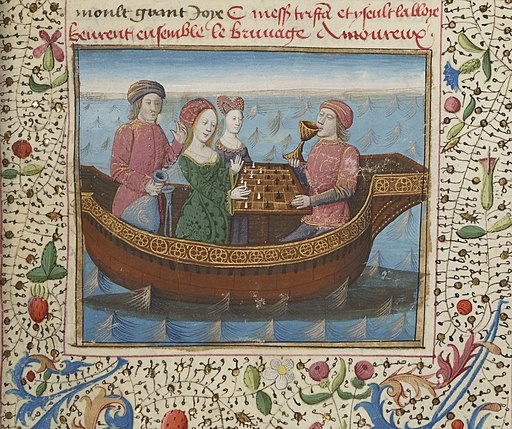 moult grant Joye ¶ mess⁠ tristã et yseult la bloye
beurent ensemble le bruuage Amoureux.